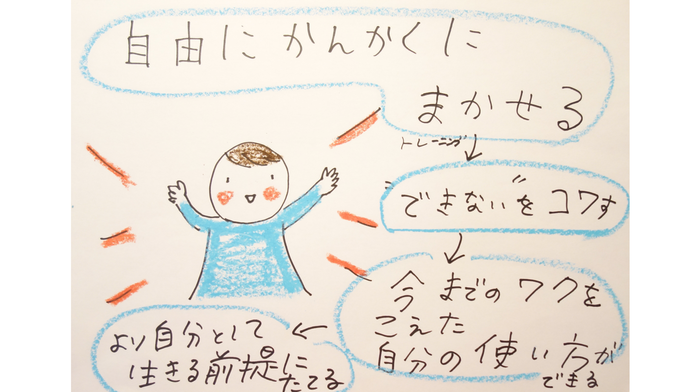 自由に かんかくに
まかせる
トレーニング
"できない"を コワす
今までのワクを
こえた
自分の使い方が
できる
より自分として
生きる前提に
たてる